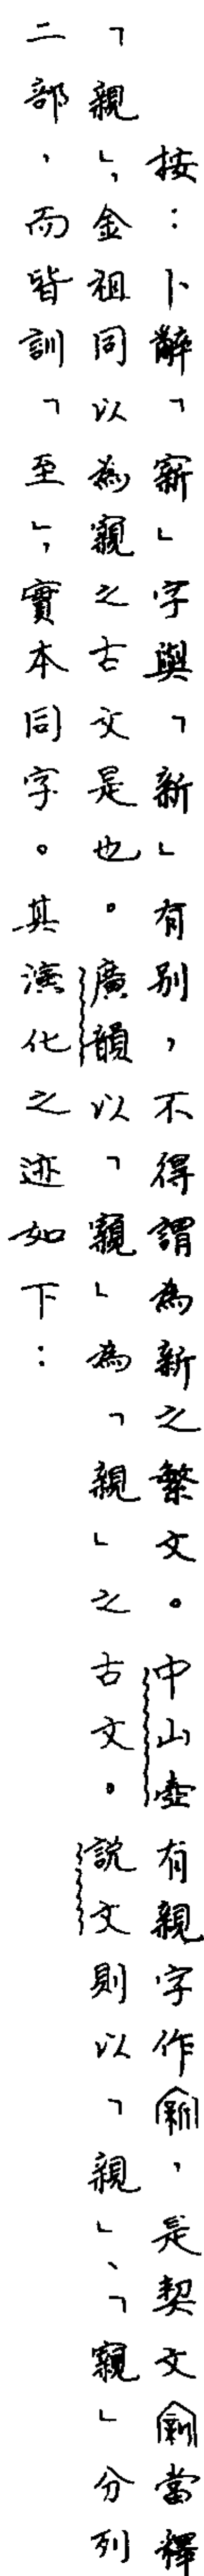 按：卜辭「寴」字與「新」有別，不得謂為新之繁文。中山壺有親字作，是契文當釋
「親」，金祖同以為寴之古文是也。廣韻以「寴」為「親」之古文。說文則以「親」、「寴」分列
二部，而皆訓「至」，實本同字。其演化之迹如下：